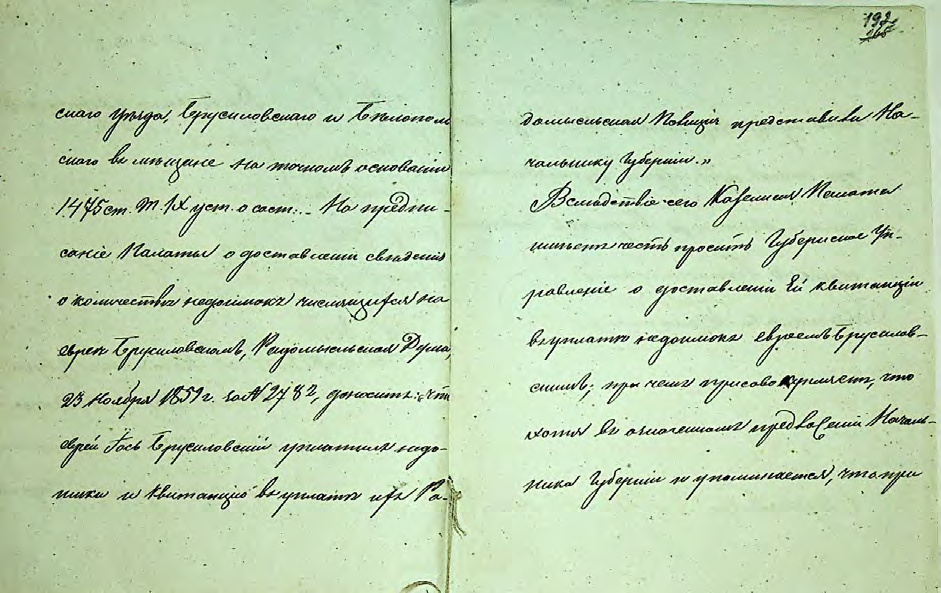 скаго уѣзда, Брусиловскаго и Бѣлопол
скаго въ мѣщане на точномъ основаніи
1475 ст. Т. IX уст. о сост:.. На предпи-
саніе Палаты о доставленіи свѣденія
о количествѣ недоимокъ числящихся на
евреѣ Брусиловскомъ, Радомысльская Дума,
23 Ноября 1859 г. за № 2782, доноситъ: „что
еврей Гось Брусиловскій уплатилъ недо-
имки и квитанцію въ уплатѣ ихъ Ра-
192
268
домысльская Полиція представила На-
чальнику Губерніи."
Вслѣдствіе сего Казенная Палата
имѣетъ честь просить Губернское Уп-
равленіе о доставленіи Ей квитанціи
въ уплатѣ недоимокъ евреемъ Брусилов-
скимъ; при чемъ присовокупляетъ, что
хотя въ означенномъ предложеніи Началь-
ника Губерніи и упоминается, что при